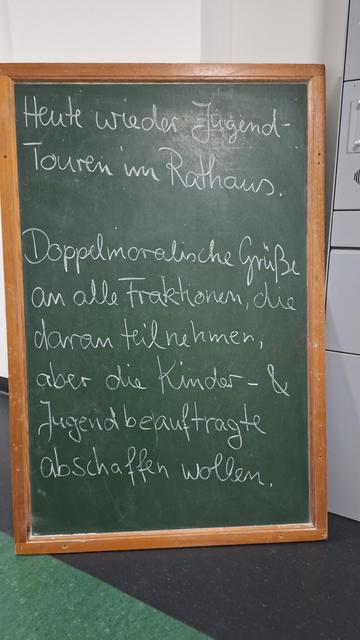 Heute wieder Jugend-
Touren im Rathaus.
Doppelmoralische Grüße
an alle Fraktionen, die
daran teilnehmen,
aber die Kinder- &
Jugendbeauftragte
abschaffen wollen.